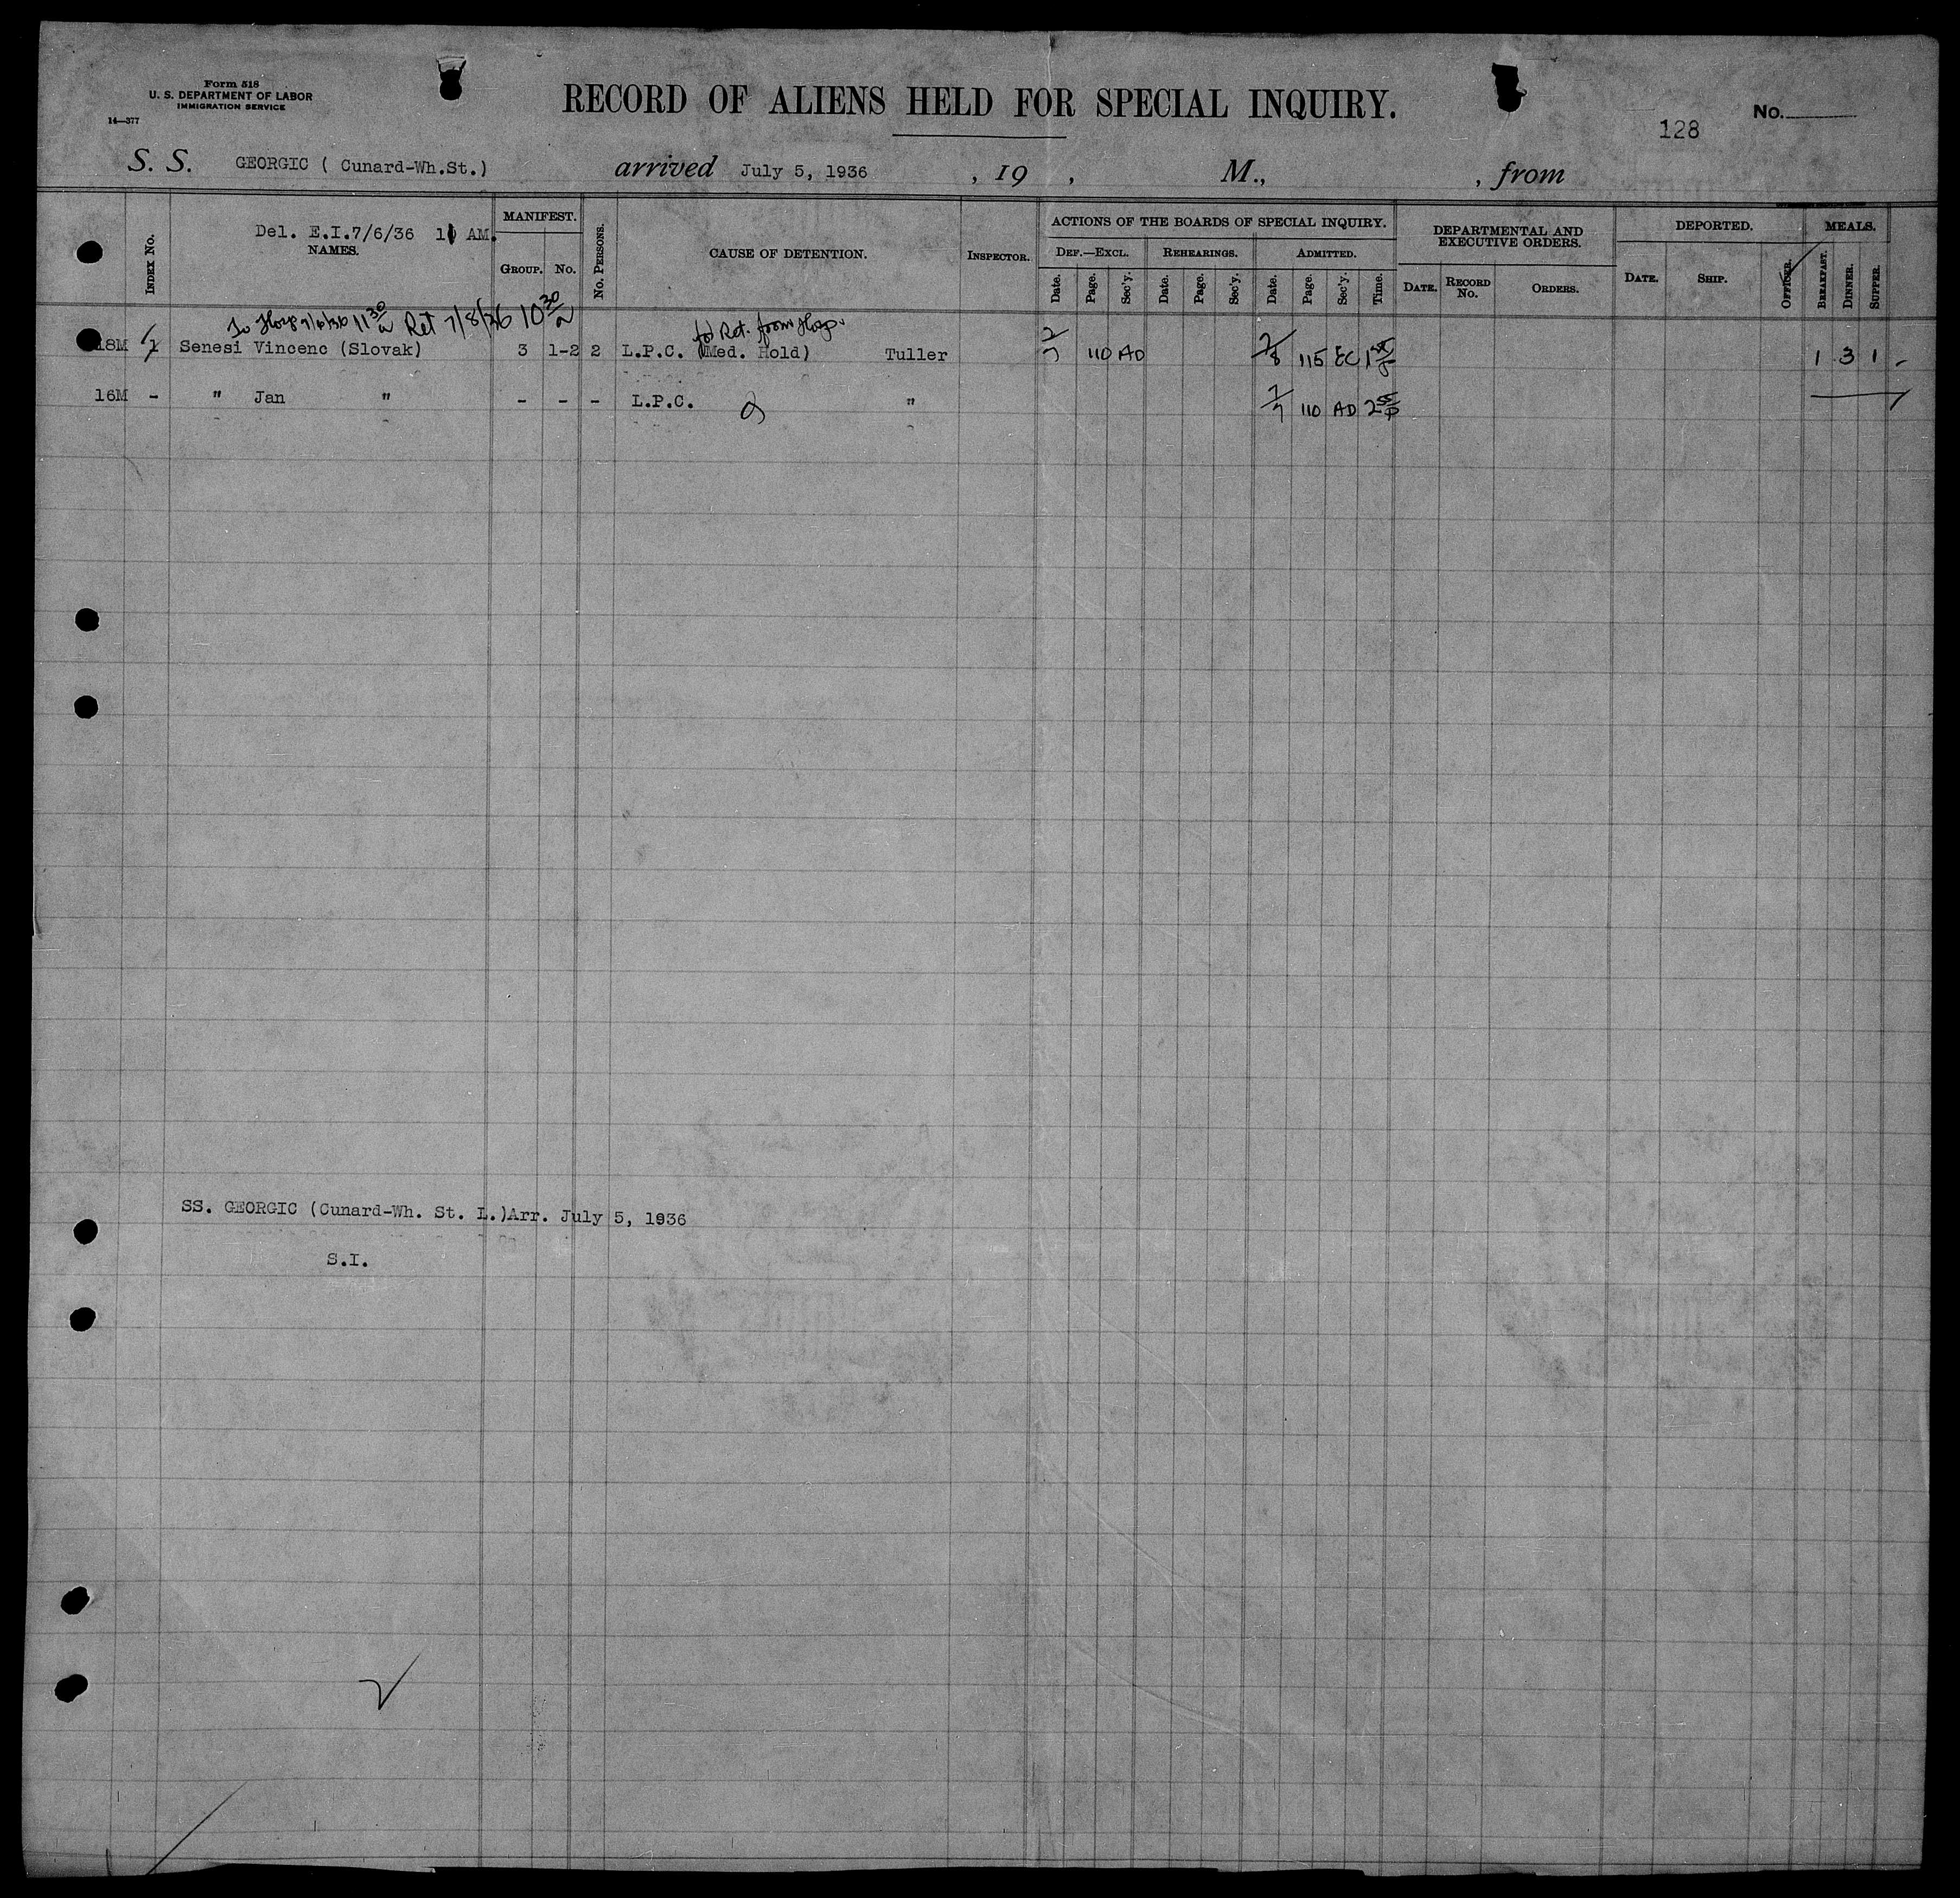 Form 518
U. S. DEPARTMENT OF LABOR
IMMIGRATION SERVICE
14—377
RECORD OF ALIENS HELD FOR SPECIAL INQUIRY.
No.
128
S. S. GEORGIC ( Cunard-Wh.St.) arrived July 5, 1936 , 19 , M., , from
INDEX No.
Del. E.I.7/6/36 AM.
NAMES.
MANIFEST.
GROUP. No.
No. PERSONS.
CAUSE OF DETENTION.
INSPECTOR.
ACTIONS OF THE BOARDS OF SPECIAL INQUIRY.
DEF.—EXCL. REHEARINGS. ADMITTED.
Date. Page. Sec'y. Date. Page. Sec'y. Date. Page. Sec'y. Time.
DEPARTMENTAL AND
EXECUTIVE ORDERS.
DATE. RECORD No. ORDERS.
DEPORTED.
DATE. SHIP. OFFICER.
MEALS.
BREAKFAST. DINNER. SUPPER.
To Hosp 7/6/36 11 30/a Ret 7/8/36 10 30/a Ret. from Hosp.
18M 1 Senesi Vincenc (Slovak) 3 1-2 2 L.P.C. (Med. Hold) Tuller 7/7 110 AD 7/8 115 EC 1 3 1
16M - " Jan " - - - L.P.C. " 7/7 110 AD 2 55/P
SS. GEORGIC (Cunard-Wh. St. L.)Arr. July 5, 1936
S.I.